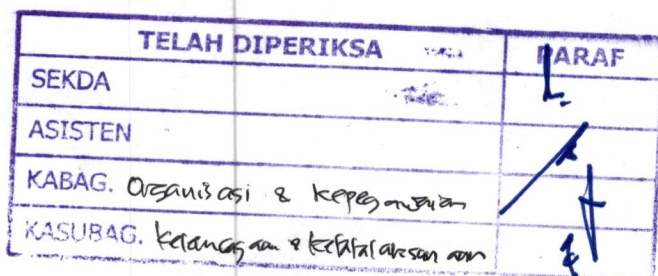 TELAH DIPERIKSA PARAF
SEKDA
ASISTEN
KABAG. Organisasi & Kepegawaian
KASUBAG. Kelembagaan & Ketatalaksanaan